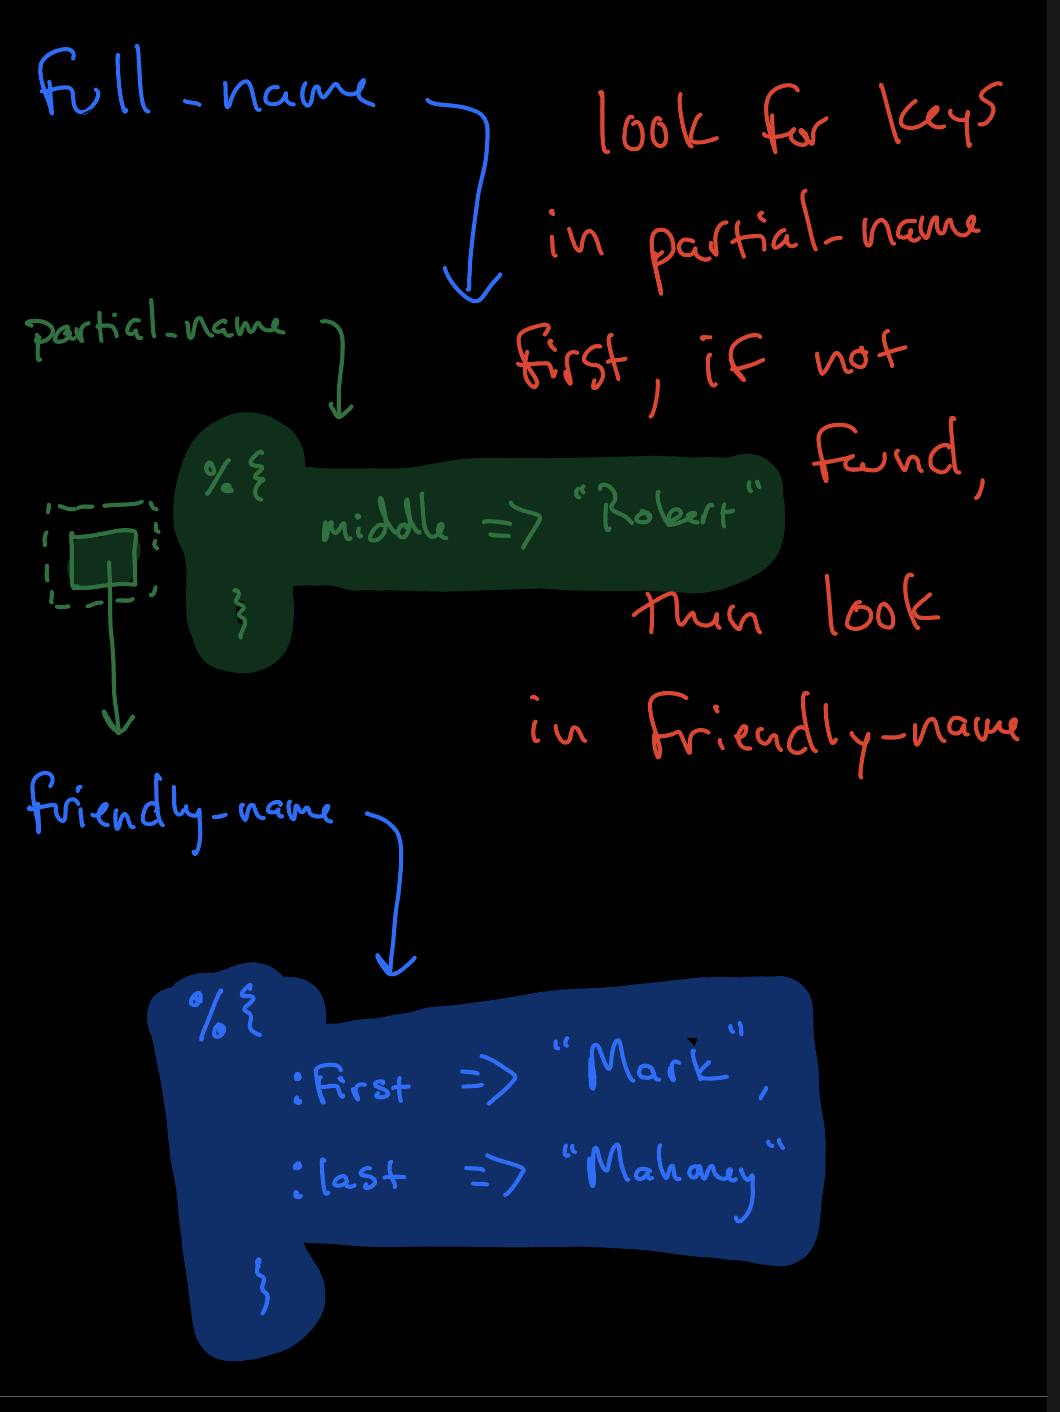 full_name
look for keys
in partial_name
first, if not
found,
then look
in friendly_name
partial_name
%{
middle => "Robert"
}
friendly_name
%{
:first => "Mark",
:last => "Mahoney"
}